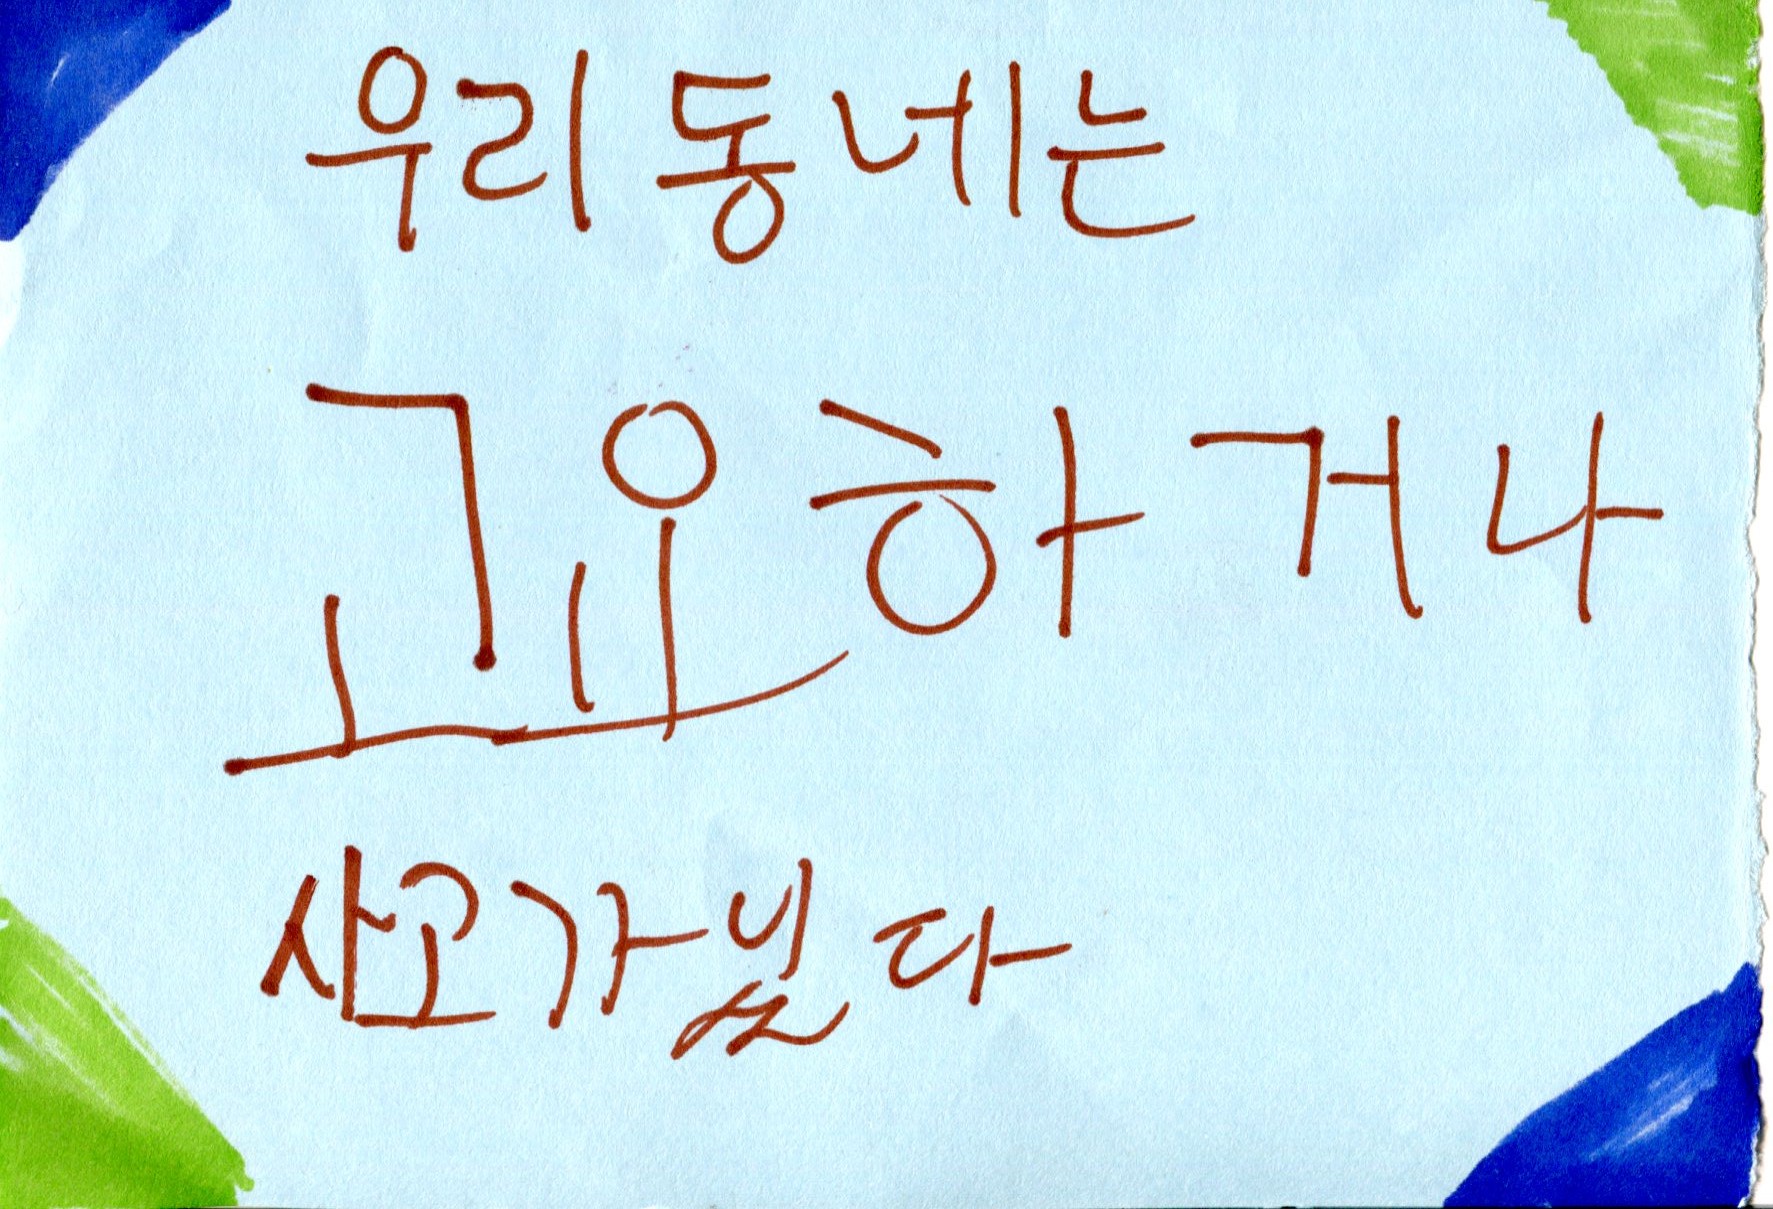 우리 동네는
고요하거나
사고가 있다